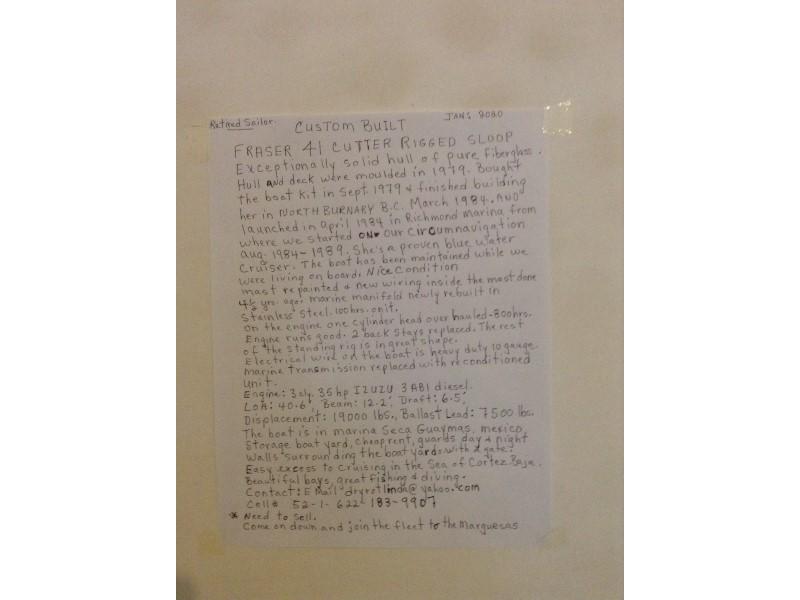 Retired Sailor.
JAN: 2020
CUSTOM BUILT
FRASER 41 CUTTER RIGGED SLOOP
Exceptionally solid hull of pure fiberglass.
Hull and deck were moulded in 1979. Bought
the boat kit in Sept 1979 & finished building
her in NORTH BURNABY B.C. March 1984. AND
launched in April 1984 in Richmond marina from
where we started ON our circumnavigation
aug. 1984-1989. She's a proven blue water
Cruiser. The boat has been maintained while we
were living on board. Nice condition
mast repainted & new wiring inside the mast done
yrs. ago. marine manifold newly rebuilt in
Stainless Steel. 100hrs. on it.
On the engine one cylinder head over hauled-300hrs.
Engine runs good. 2 back stays replaced. The rest
of the standing rig is in great shape.
Electrical wire on the boat is heavy duty 10 gauge.
marine transmission replaced with reconditioned
unit.
Engine: 3 cly. 35 hp IZUZU 3AB1 diesel.
LOA: 40.6' Beam: 12.2' Draft: 6.5'
Displacement: 19000 lbs., Ballast Lead: 7500 lbs.
The boat is in marina Seca Guaymas, mexico,
Storage boat yard, cheap rent, guards day & night
Walls surrounding the boat yard with a gate.
Easy excess to cruising in the Sea of Cortez Baja.
Beautiful bays, great fishing & diving.
Contact: EMail dryrotlinda@yahoo.com
Cell# 52-1-622-183-9907
* Need to sell.
Come on down and join the fleet to the Marguesas